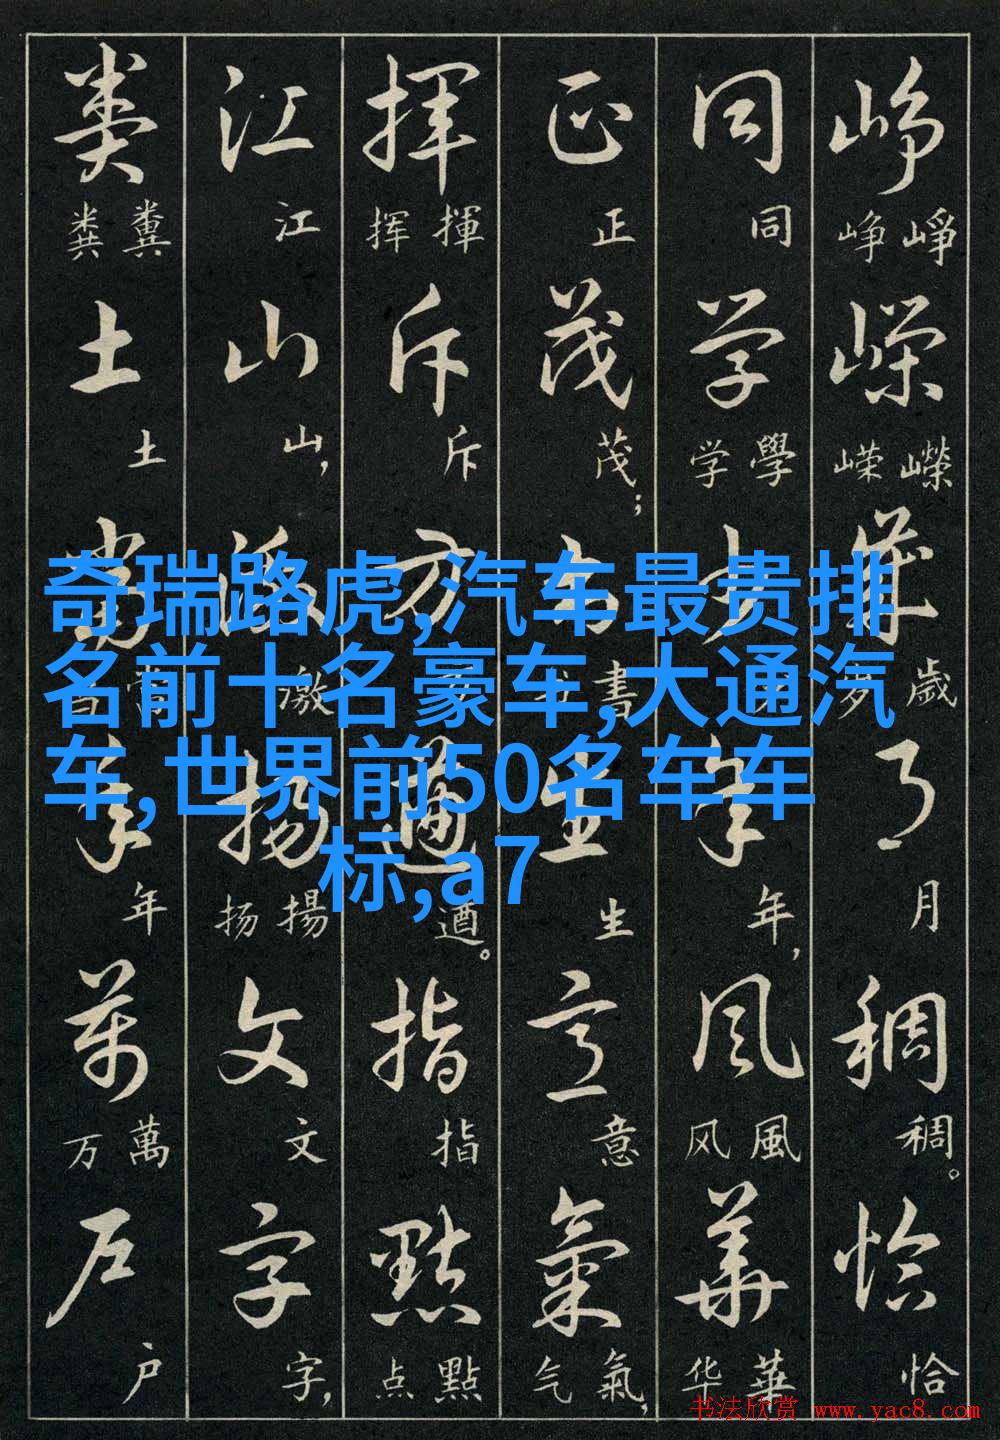 奇瑞路虎,汽车最贵排
名前十名豪车,大通汽
车,世界前50名车车
标,a7
峥嵘岁月稠恰
崢嶸歲月稠。恰
峥嵘岁
同学少年风华
同學年,風華
学风华
正茂书生意氣
正茂;書生意氣,
气
挥斥方遒指點
揮斥遒。指點
挥点
江山激扬文字
江山,激揚文字,
扬
粪土当年万户
糞土當年萬户
粪当万
书法欣赏 www.yac8.com